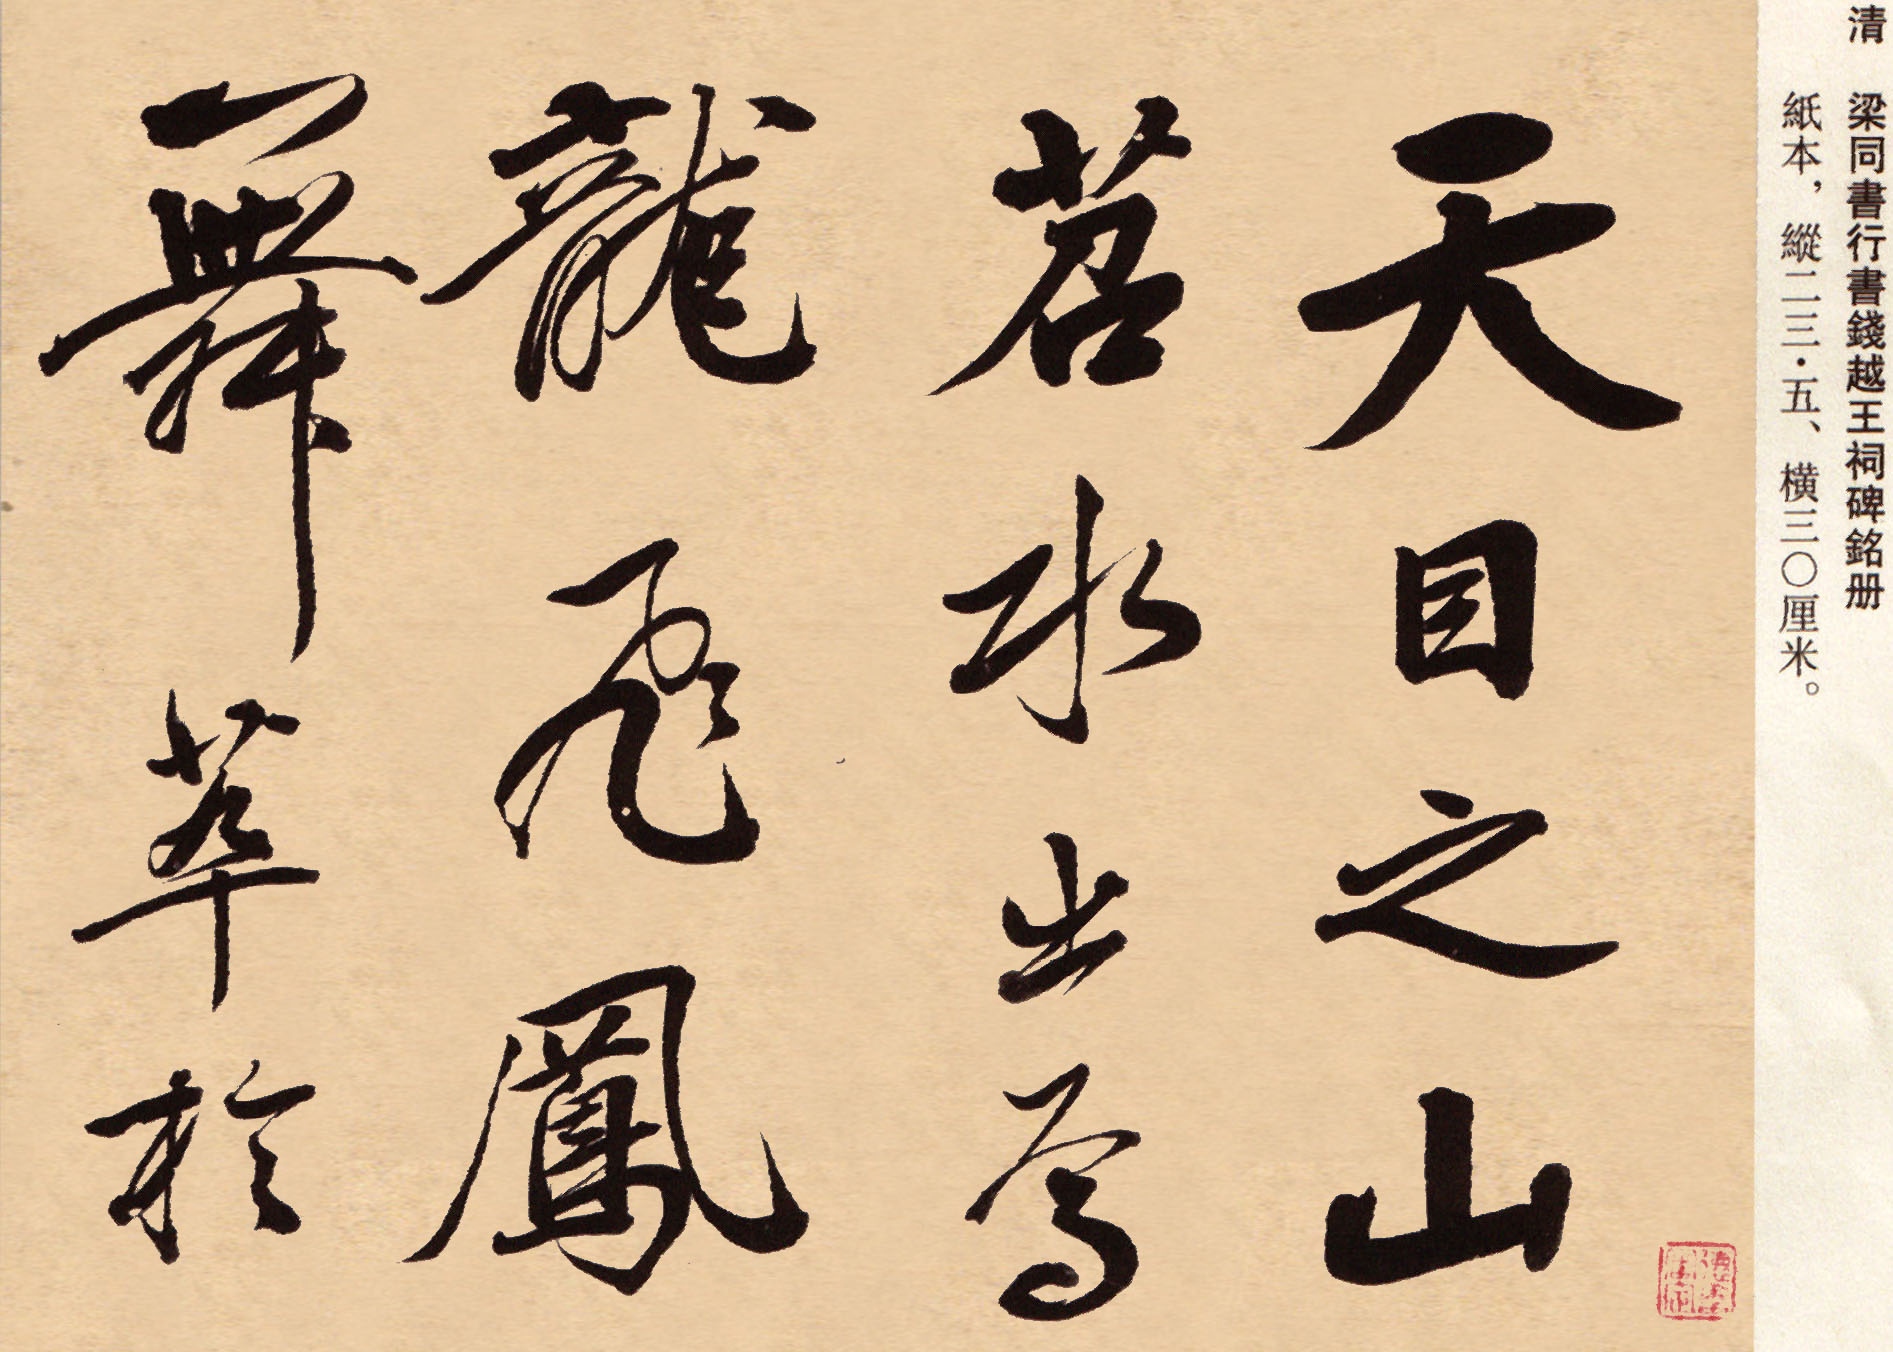 清　梁同書行書錢越王祠碑銘册
紙本，縱二三・五、橫三〇厘米。
天目之山
苕水出焉
龍飛鳳
舞萃於